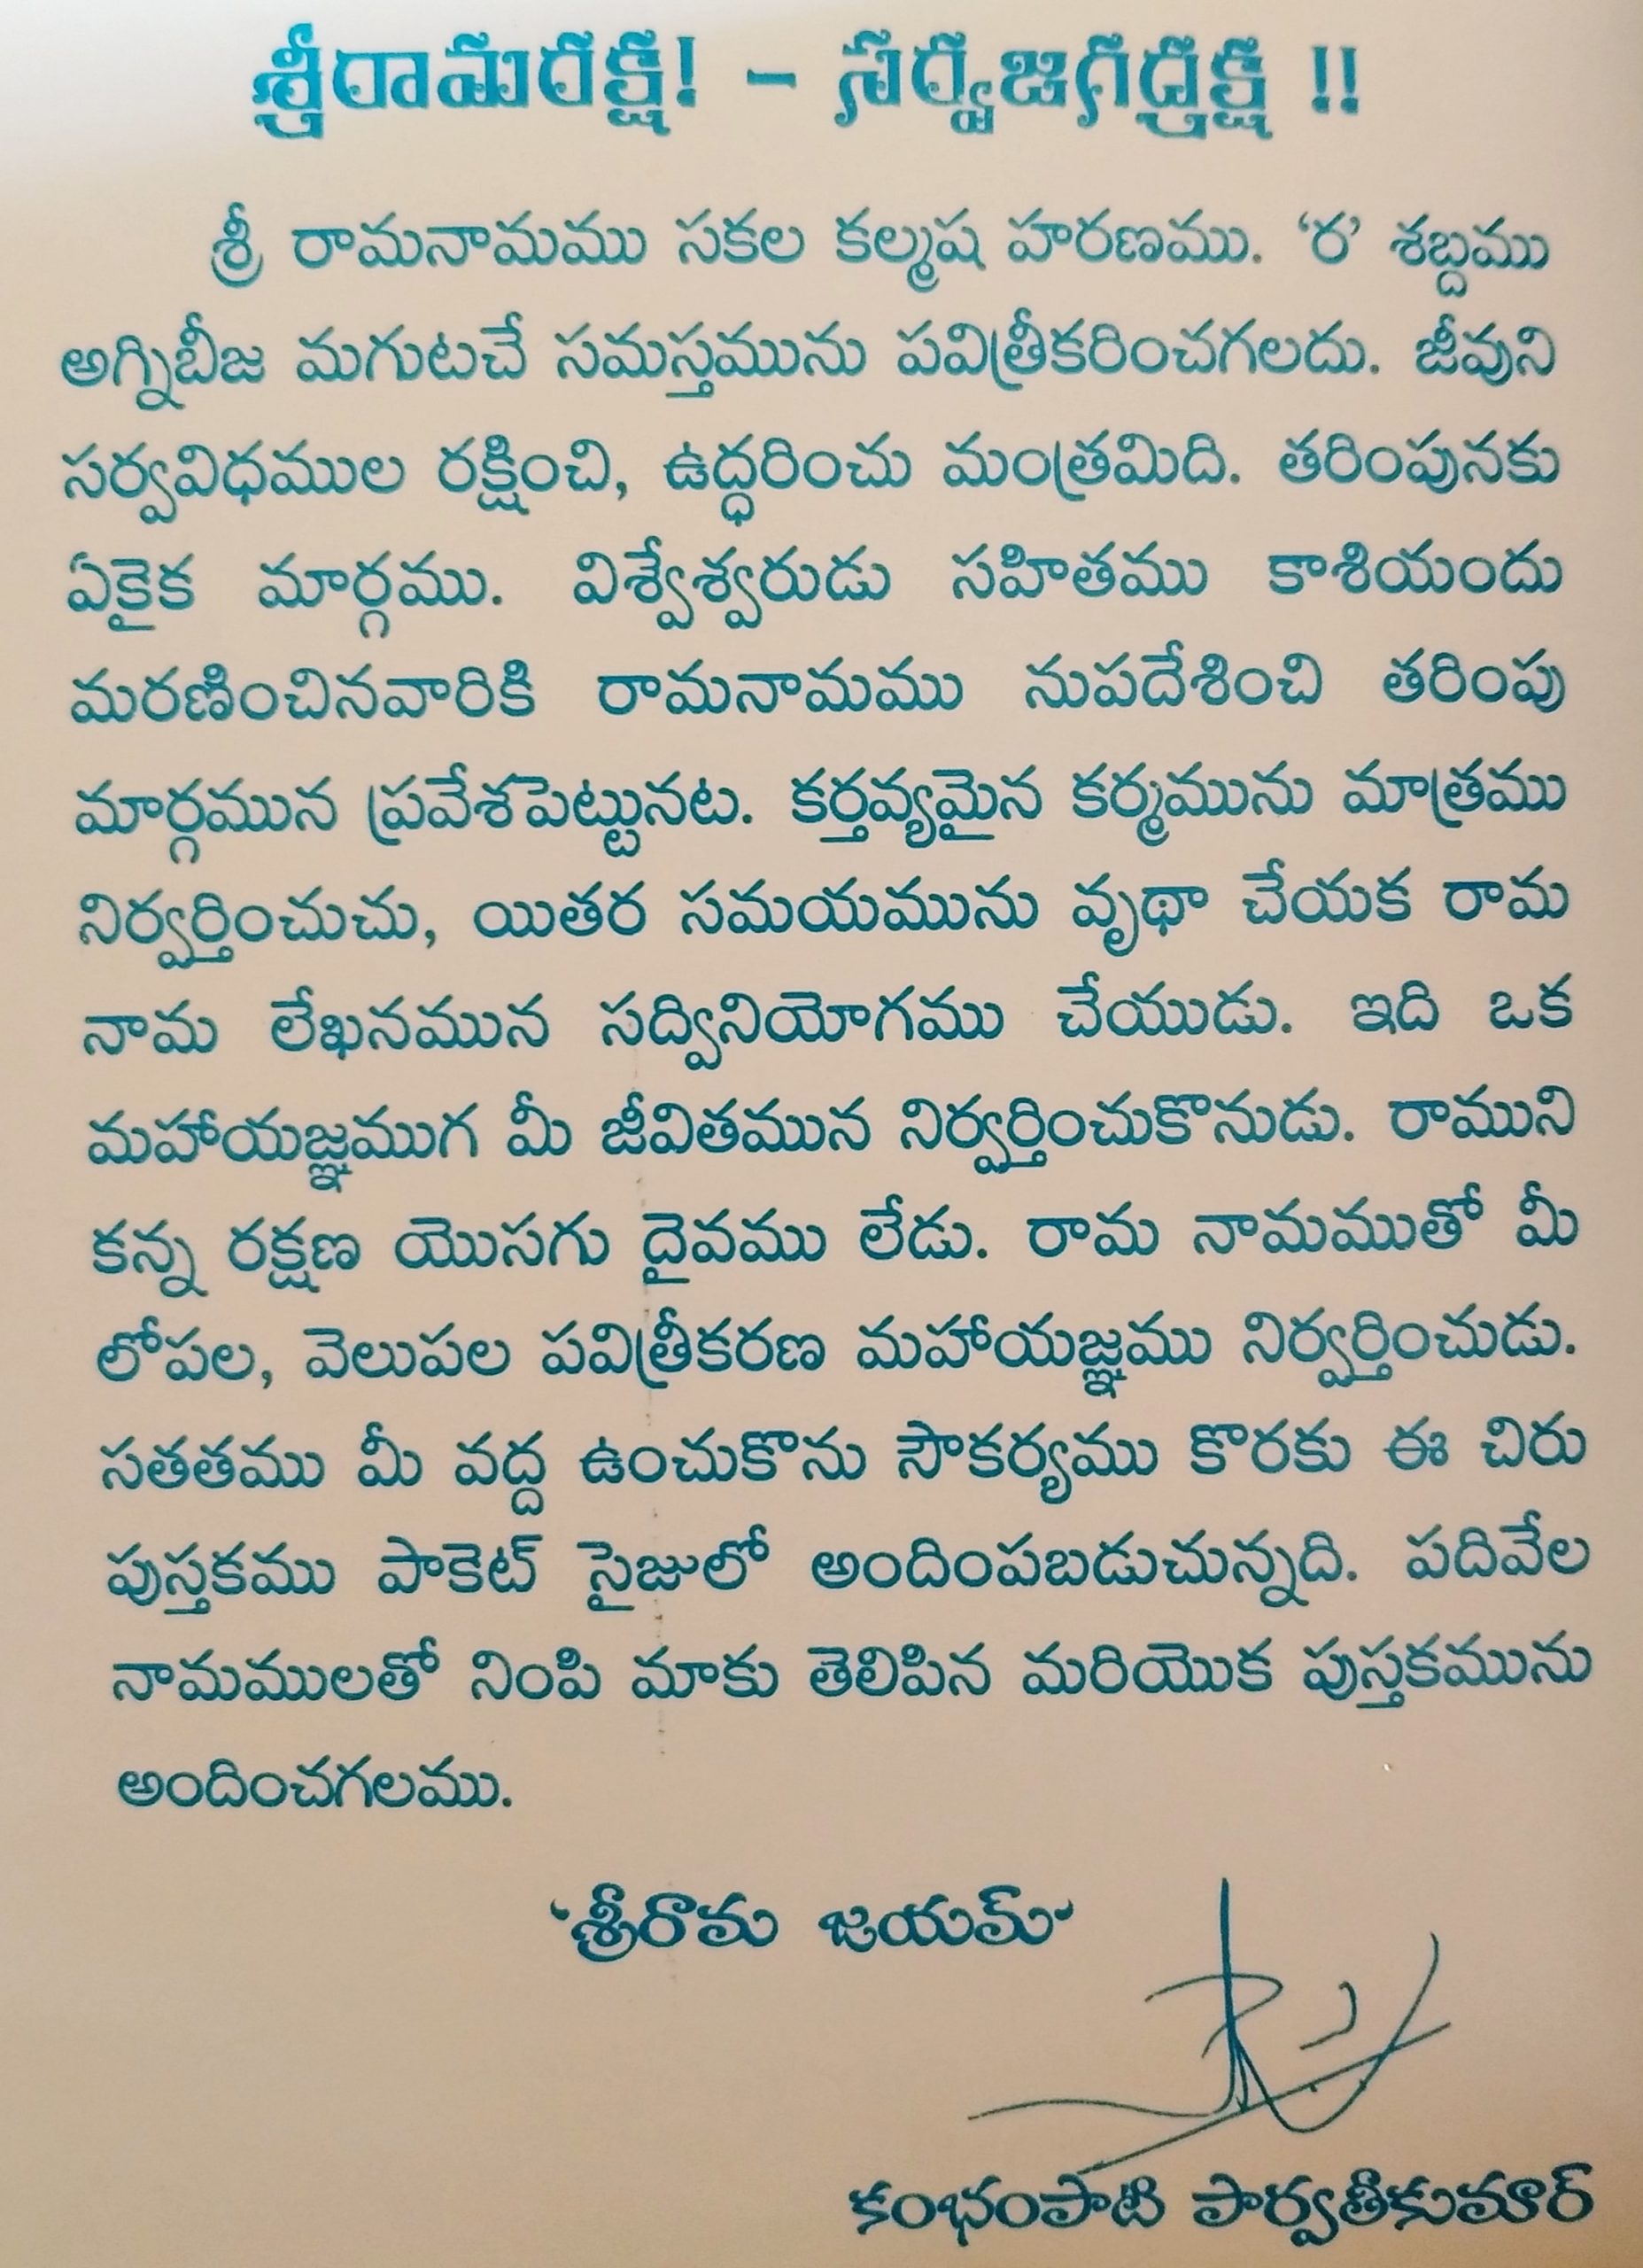 శ్రీరామరక్ష! – సర్వజగద్రక్ష !!
శ్రీ రామనామము సకల కల్మష హరణము. ‘ర’ శబ్దము
అగ్నిబీజ మగుటచే సమస్తమును పవిత్రీకరించగలదు. జీవుని
సర్వవిధముల రక్షించి, ఉద్ధరించు మంత్రమిది. తరింపునకు
ఏకైక మార్గము. విశ్వేశ్వరుడు సహితము కాశియందు
మరణించినవారికి రామనామము నుపదేశించి తరింపు
మార్గమున ప్రవేశపెట్టునట. కర్తవ్యమైన కర్మమును మాత్రము
నిర్వర్తించుచు, యితర సమయమును వృథా చేయక రామ
నామ లేఖనమున సద్వినియోగము చేయుడు. ఇది ఒక
మహాయజ్ఞముగ మీ జీవితమున నిర్వర్తించుకొనుడు. రాముని
కన్న రక్షణ యొసగు దైవము లేడు. రామ నామముతో మీ
లోపల, వెలుపల పవిత్రీకరణ మహాయజ్ఞము నిర్వర్తించుడు.
సతతము మీ వద్ద ఉంచుకొను సౌకర్యము కొరకు ఈ చిరు
పుస్తకము పాకెట్ సైజులో అందింపబడుచున్నది. పదివేల
నామములతో నింపి మాకు తెలిపిన మరియొక పుస్తకమును
అందించగలము.
‘శ్రీరామ జయమ్’
కంభంపాటి పార్వతీకుమార్